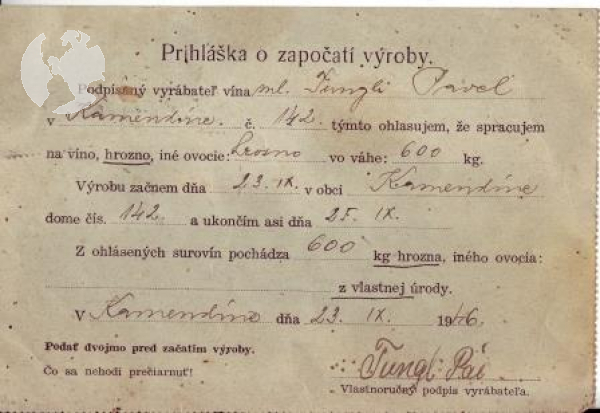 Prihláška o započatí výroby.
Podpísaný vyrábateľ vína ml. Tungli Pavel
v Kamendíne. č. 142. týmto ohlasujem, že spracujem
na víno, hrozno, iné ovocie: hrozno vo váhe: 600 kg.
Výrobu začnem dňa 23. IX. v obci Kamendíne
dome čís. 142 a ukončím asi dňa 25. IX.
Z ohlásených surovín pochádza 600 kg hrozna, iného ovocia:
z vlastnej úrody.
V Kamendíne dňa 23. IX. 1946.
Podať dvojmo pred začatím výroby.
Čo sa nehodí prečiarnuť!
Tungli Pav
Vlastnoručný podpis vyrábateľa.